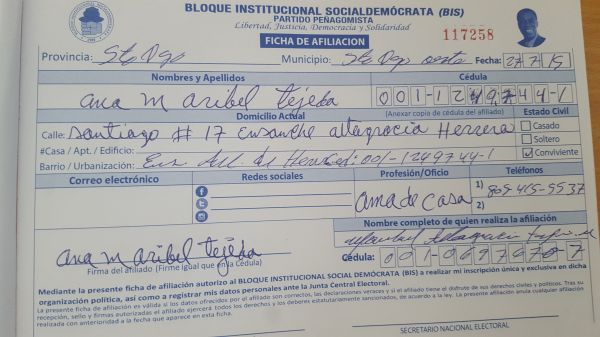 BLOQUE INSTITUCIONAL SOCIALDEMÓCRATA (BIS)
PARTIDO PEÑAGOMISTA
Libertad, Justicia, Democracia y Solidaridad
FICHA DE AFILIACION
117258
Provincia: Sto Dgo Municipio: Sto Dgo oeste Fecha: 27-7-15
Nombres y Apellidos Cédula
ana maribel tejeda 001-1249744-1
Domicilio Actual (Anexar copia de cédula del afiliado) Estado Civil
Calle: Santiago # 17 Ensanche altagracia Herrera Casado
#Casa / Apt. / Edificio: Soltero
Barrio / Urbanización: Ens. Alt. de Herr Ced: 001-1249744-1 Conviviente
Correo electrónico Redes sociales Profesión/Oficio Teléfonos
ama de casa 1) 809-465-5537
2)
Nombre completo de quien realiza la afiliación
ana maribel tejeda
Firma del afiliado (Firme igual que en la Cédula) Cédula:
Mediante la presente ficha de afiliación autorizo al BLOQUE INSTITUCIONAL SOCIAL DEMÓCRATA (BIS) a realizar mi inscripción única y exclusiva en dicha
organización política, así como a registrar mis datos personales ante la Junta Central Electoral.
La presente ficha de afiliación es válida si los datos ofrecidos por el afiliado son correctos, las declaraciones veraces y si el afiliado tiene el disfrute de sus derechos civiles y políticos. Tras su
recepción, sello y firmas autorizadas el afiliado ejercerá todos los derechos y los deberes estatutariamente sancionados, de acuerdo a la ley. La presente afiliación anula cualquier afiliación
realizada con anterioridad a la fecha que aparece en esta ficha.
SECRETARIO NACIONAL ELECTORAL